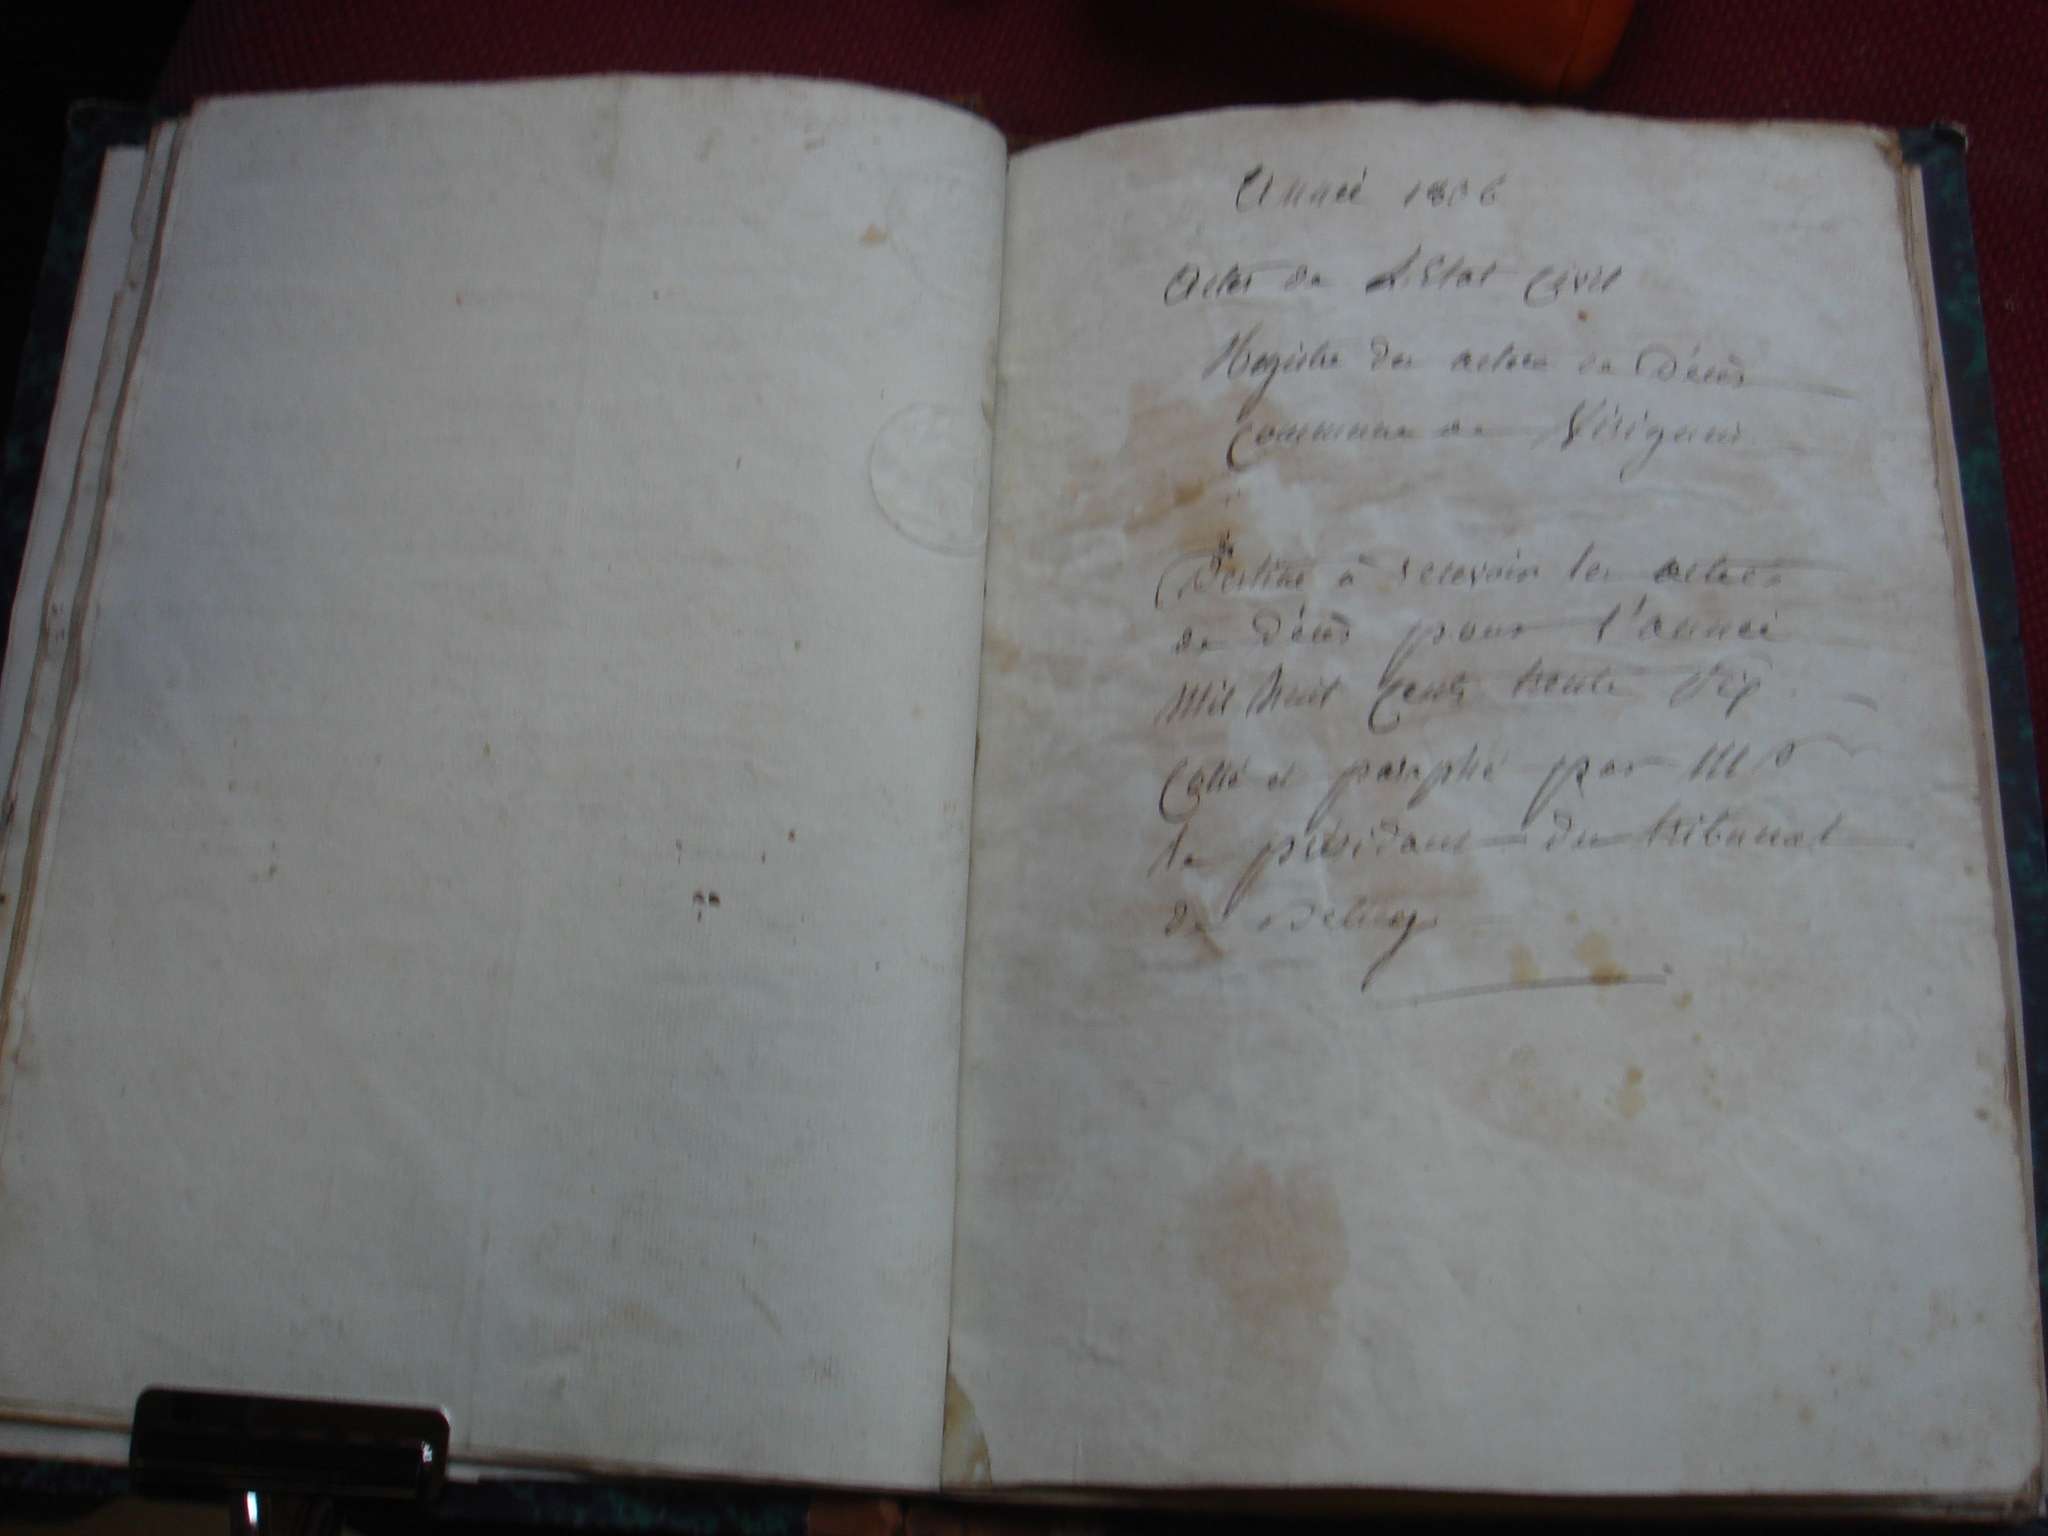 Année 1836
Actes de L'Etat Civil
Registre des actes de Décès
Commune de Virignin
Destiné à recevoir les actes
de Décès pour l'année
Mil huit Cents trente Six
Cotté et paraphé par Mr
le président du tribunal
de Belley